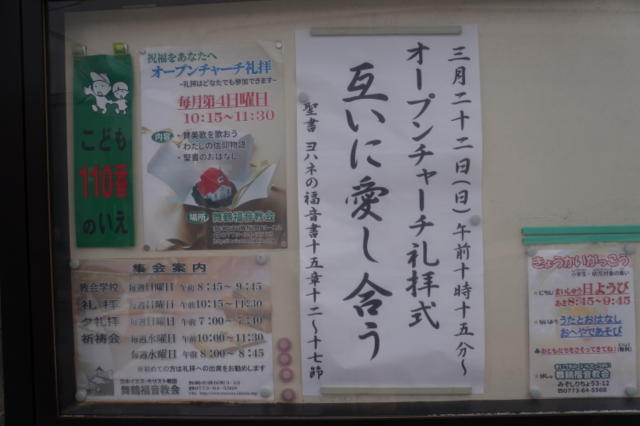 こども
110番
のいえ
祝福をあなたへ
オープンチャーチ礼拝
~礼拝はどなたでも参加できます~
毎月第4日曜日
10:15~11:30
内容
・賛美歌を歌おう
・わたしの信仰物語
・聖書のおはなし
場所
舞鶴福音教会
三月二十二日(日)午前十時十五分~
オープンチャーチ礼拝式
互いに愛し合う
聖書 ヨハネの福音書十五章十二~十七節
集会案内
教会学校 毎週日曜日 午前 8:45~9:45
礼拝 毎週日曜日 午前10:15~11:30
夕礼拝 毎週日曜日 午後 7:00~7:40
祈祷会 毎週水曜日 午前10:00~11:00
毎週水曜日 午後 8:00~8:45
※初めての方は礼拝への出席をお勧めします
舞鶴福音教会
☎0773-64-5568
きょうかいがっこう
まいしゅう日ようび
あさ8:45~9:45
うたとおはなし
おへやであそび
おともだちをさそってきてね!
舞鶴福音教会
みぞしりちょう53-12
☎0773-64-5568